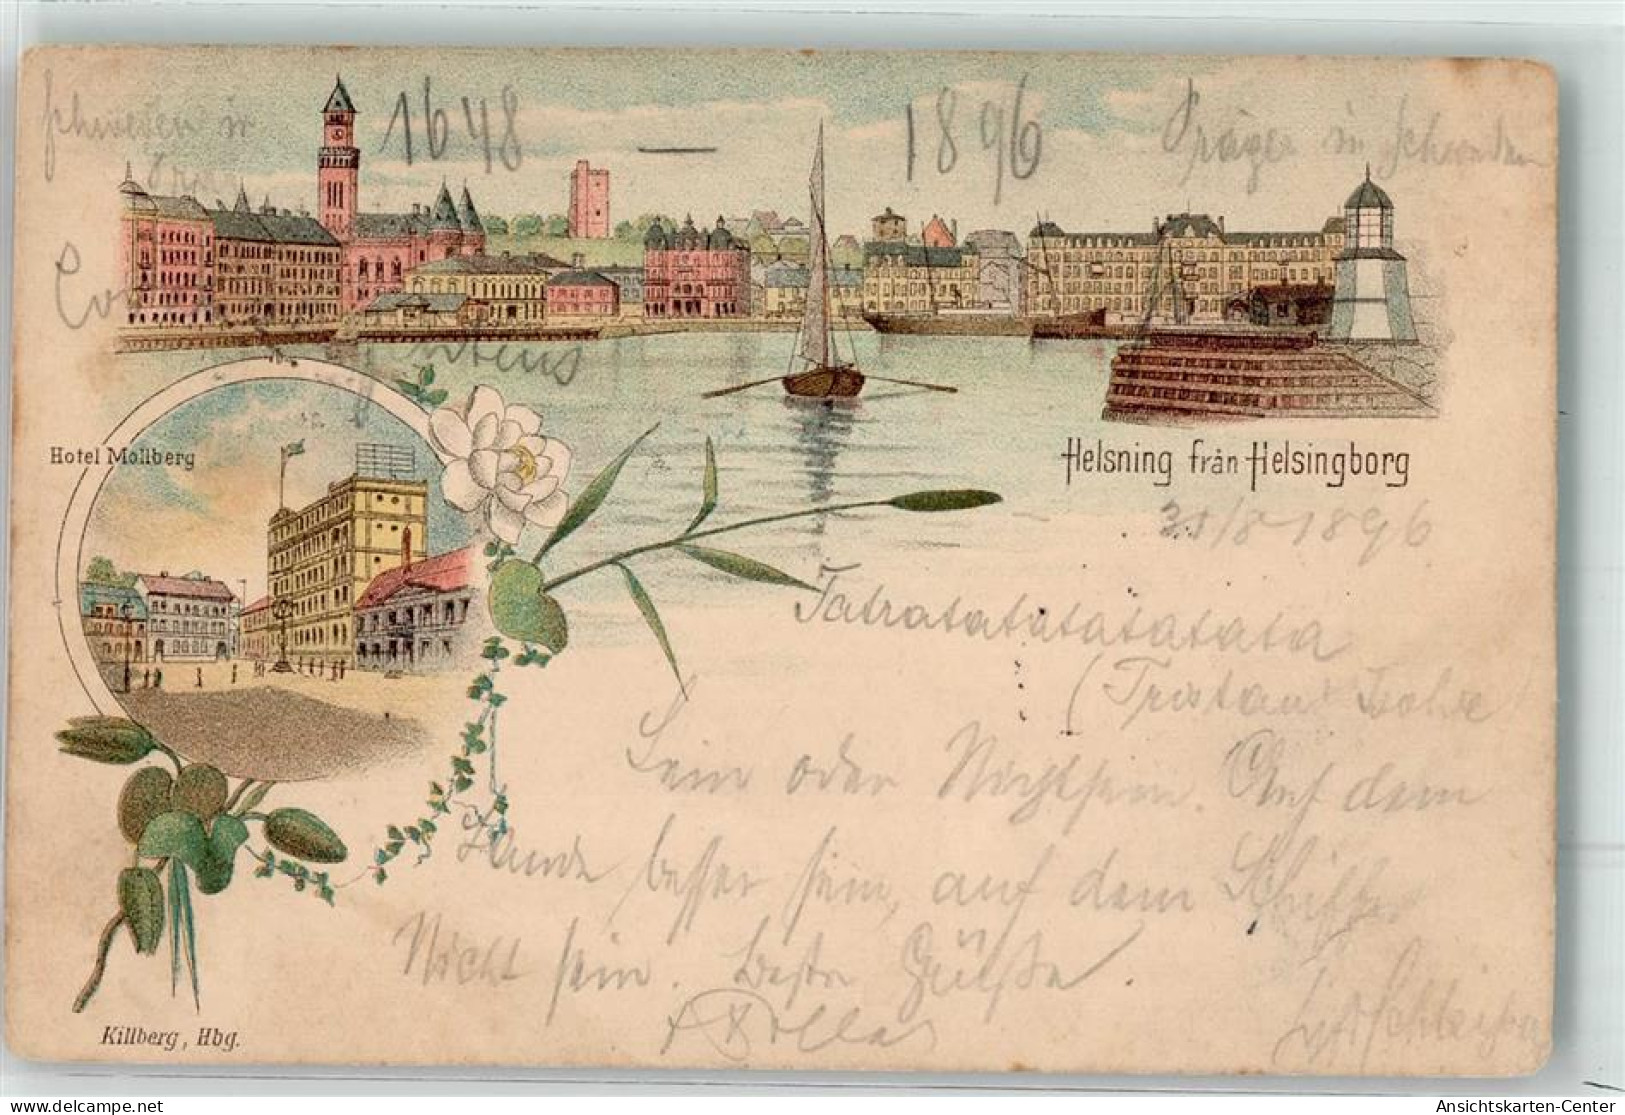 Schweden in
1648 — 1896
Präger in Schweden
Hotel Mollberg
Helsning från Helsingborg
21/8 1896
Tatratatatatatata
(Tristan Isolde)
Sein oder Nichtsein. Auf dem
Lande besser sein, auf dem Schiffe
Nicht sein. Beste Grüße
Killberg, Hbg.
Ansichtskarten-Center